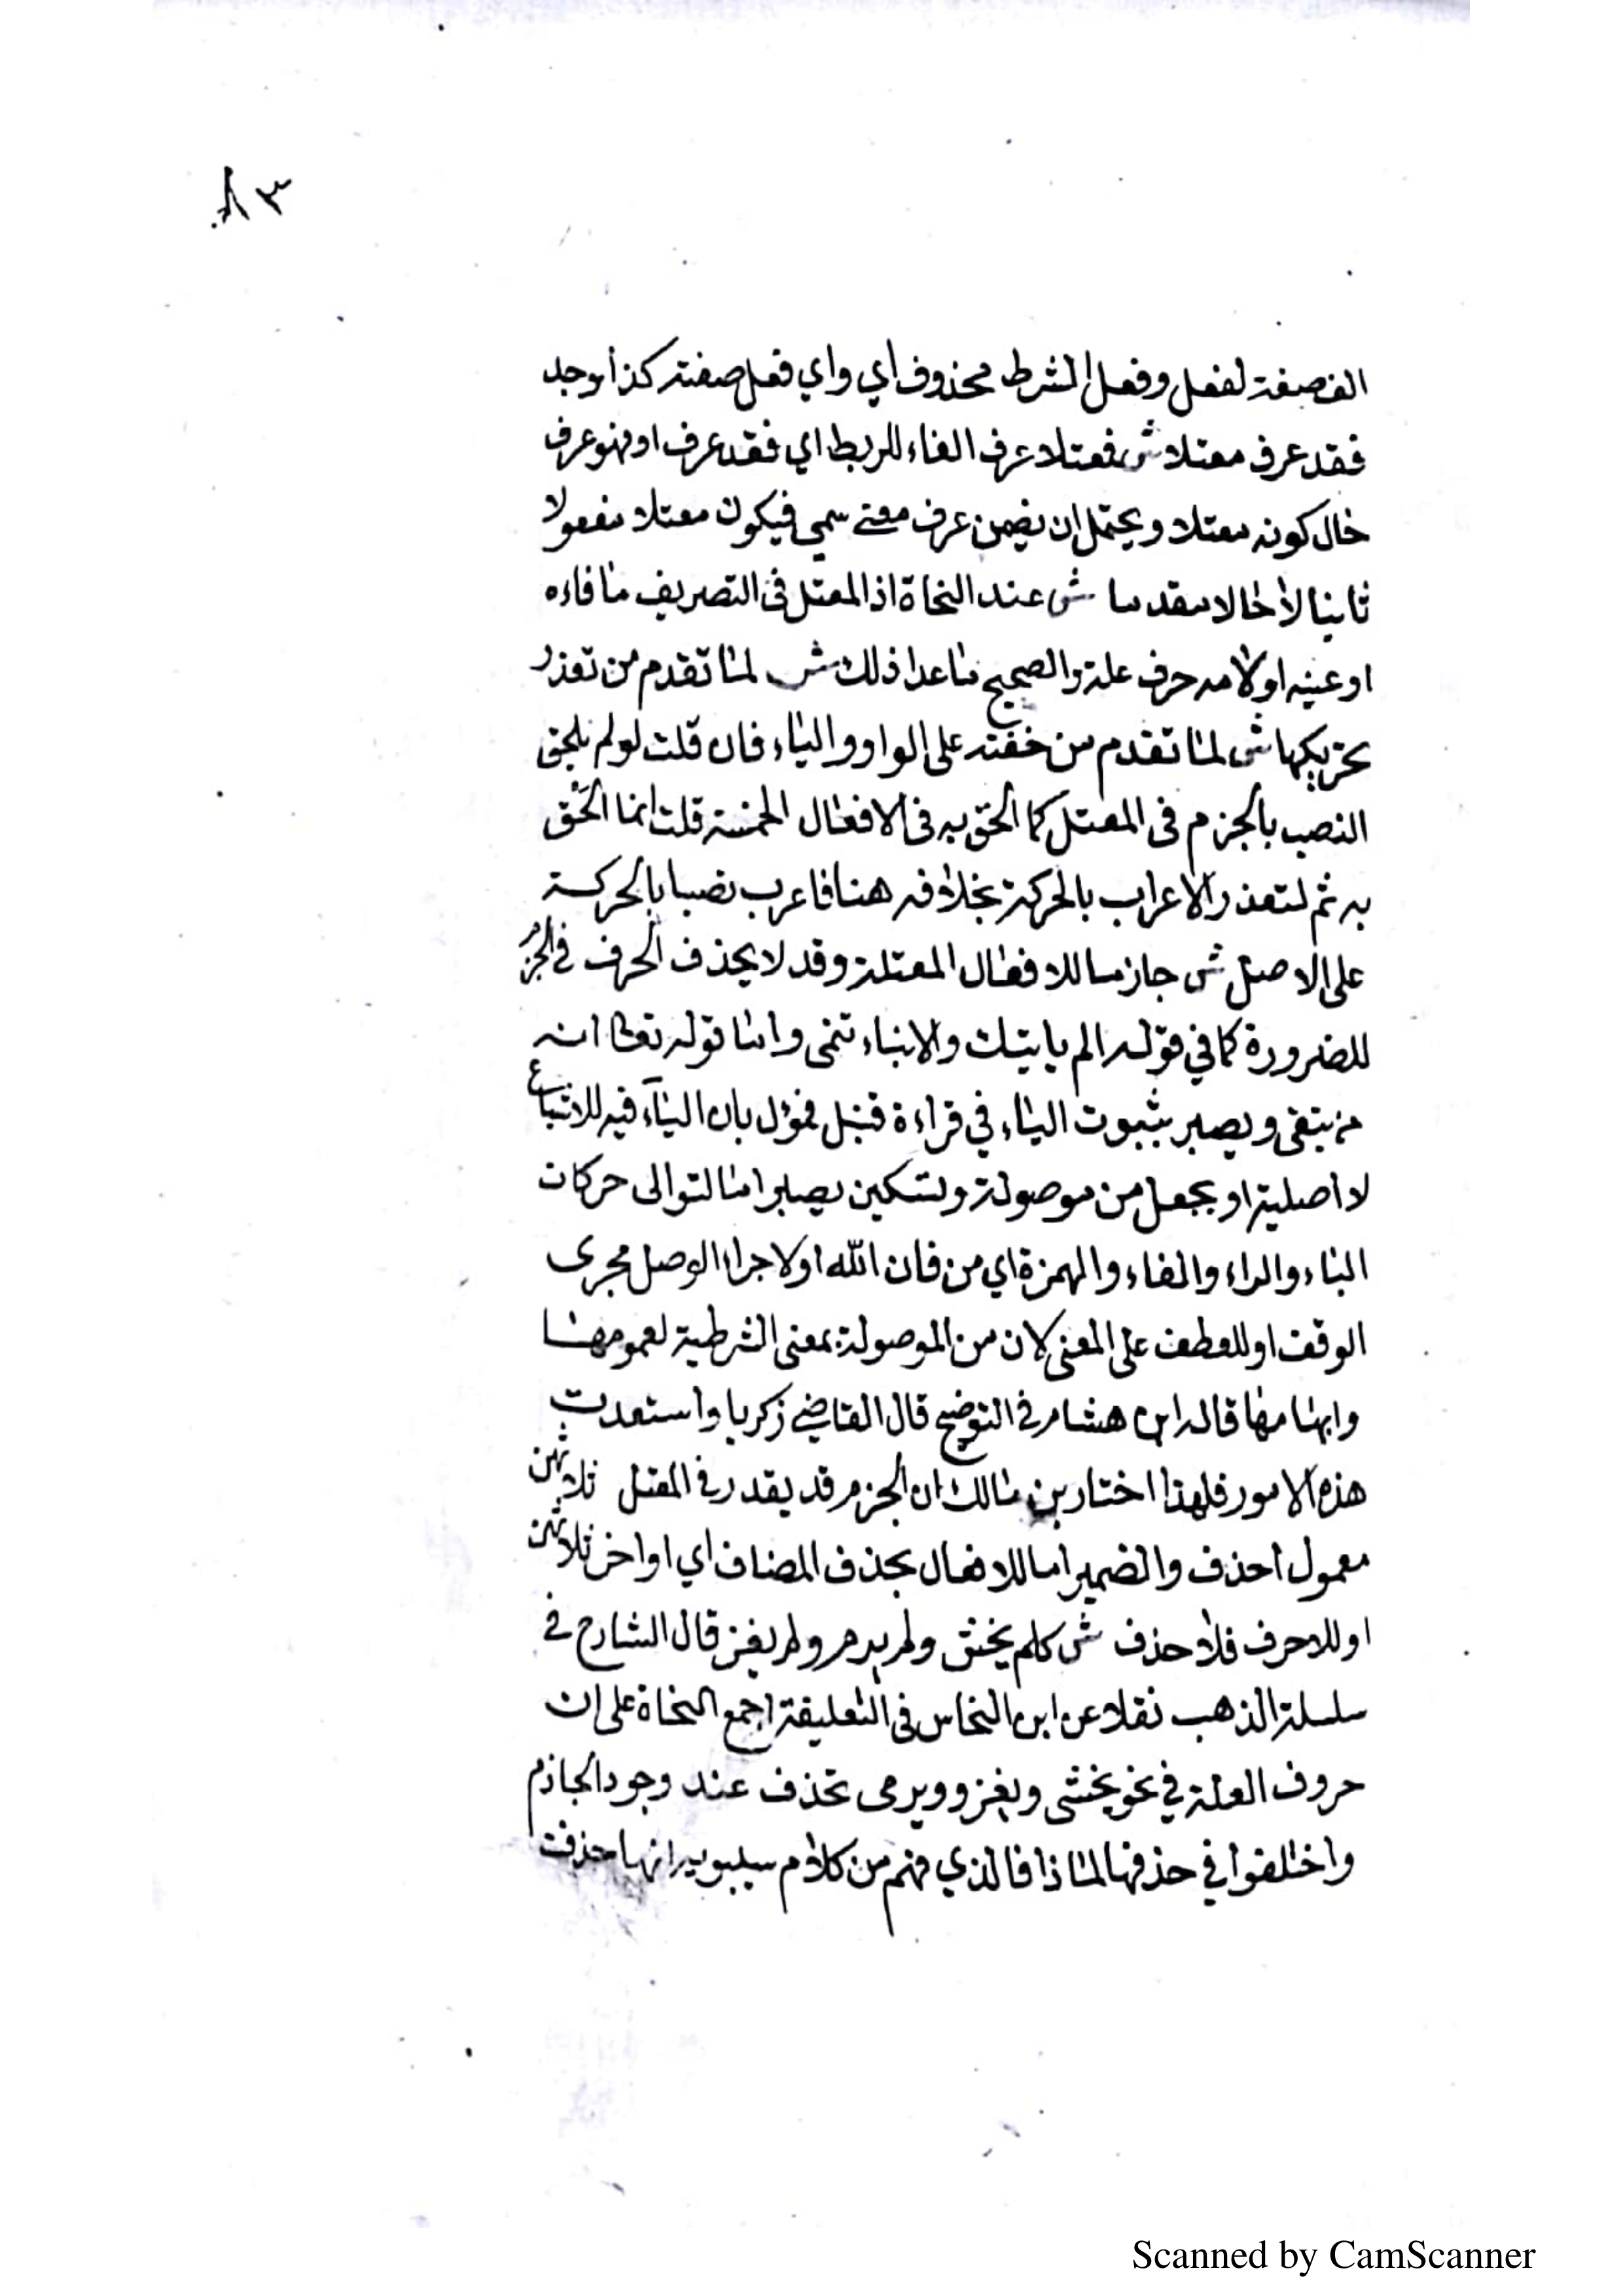 ٨٣
الفصيفة لفعل وفعل الشرط محذوف أي واي فعل صفته كذا وجد
فقد عرف معتلا ش فمعتلا عرف الفاء للربط اي فقد عرف او فهو عرف
حال كونه معتلا ويحتمل ان يضمن عرف معنى سمي فيكون معتلا مفعولا
ثانيا لا حالا مقدما ش عند النحاة اذ المعتل في التصريف ما فاءه
او عينه او لامه حرف علة والصحيح ما عدا ذلك ش لما تقدم من تعذر
تحريكها ش لما تقدم من خفته على الواو والياء فان قلت لو لم يلحق
النصب بالجزم في المعتل كما الحق به في الافعال الخمسة قلت انما الحق
به ثم لتعذر الاعراب بالحركة بخلافه هنا فاعرب نصبا بالحركة
على الاصل ش جازما للافعال المعتلة وقد لا يحذف الحرف في الجزم
للضرورة كما في قوله الم ياتيك والانباء تنمى واما قوله تعالى انه
من يتقى ويصبر بثبوت الياء في قراءة قنبل فمؤل بان الياء فيه للاتباع
لا أصلية او بجعل من موصولة وتسكين يصبر اما لتوالى حركات
الباء والراء والفاء والهمزة اي من فان الله او لاجراء الوصل مجرى
الوقف او للعطف على المعنى لان من الموصولة بمعنى الشرطية لعمومها
وابهامها قاله ابن هشام في التوضيح قال القاضي زكريا واستعدت
هذه الامور فلهذا اختار بن مالك ان الجزم قد يقدر في المعتل ثلاثهن
معمول أحذف والضمير اما للافعال بحذف المضاف اي اواخر ثلاثهن
او للاحرف فلا حذف ش كلم يخش ولم يرم ولم يغز قال الشارح في
سلسلة الذهب نقلا عن ابن النحاس في التعليقة اجمع النحاة على ان
حروف العلة في نحو يخشى ويغزو ويرمى تحذف عند وجود الجازم
واختلفوا في حذفها لماذا فالذي فهم من كلام سيبويه انها حذفت
Scanned by CamScanner